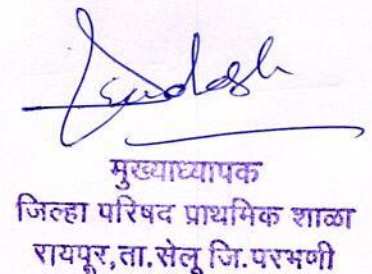 मुख्याध्यापक
जिल्हा परिषद प्राथमिक शाळा
रायपूर,ता.सेलू जि.परभणी